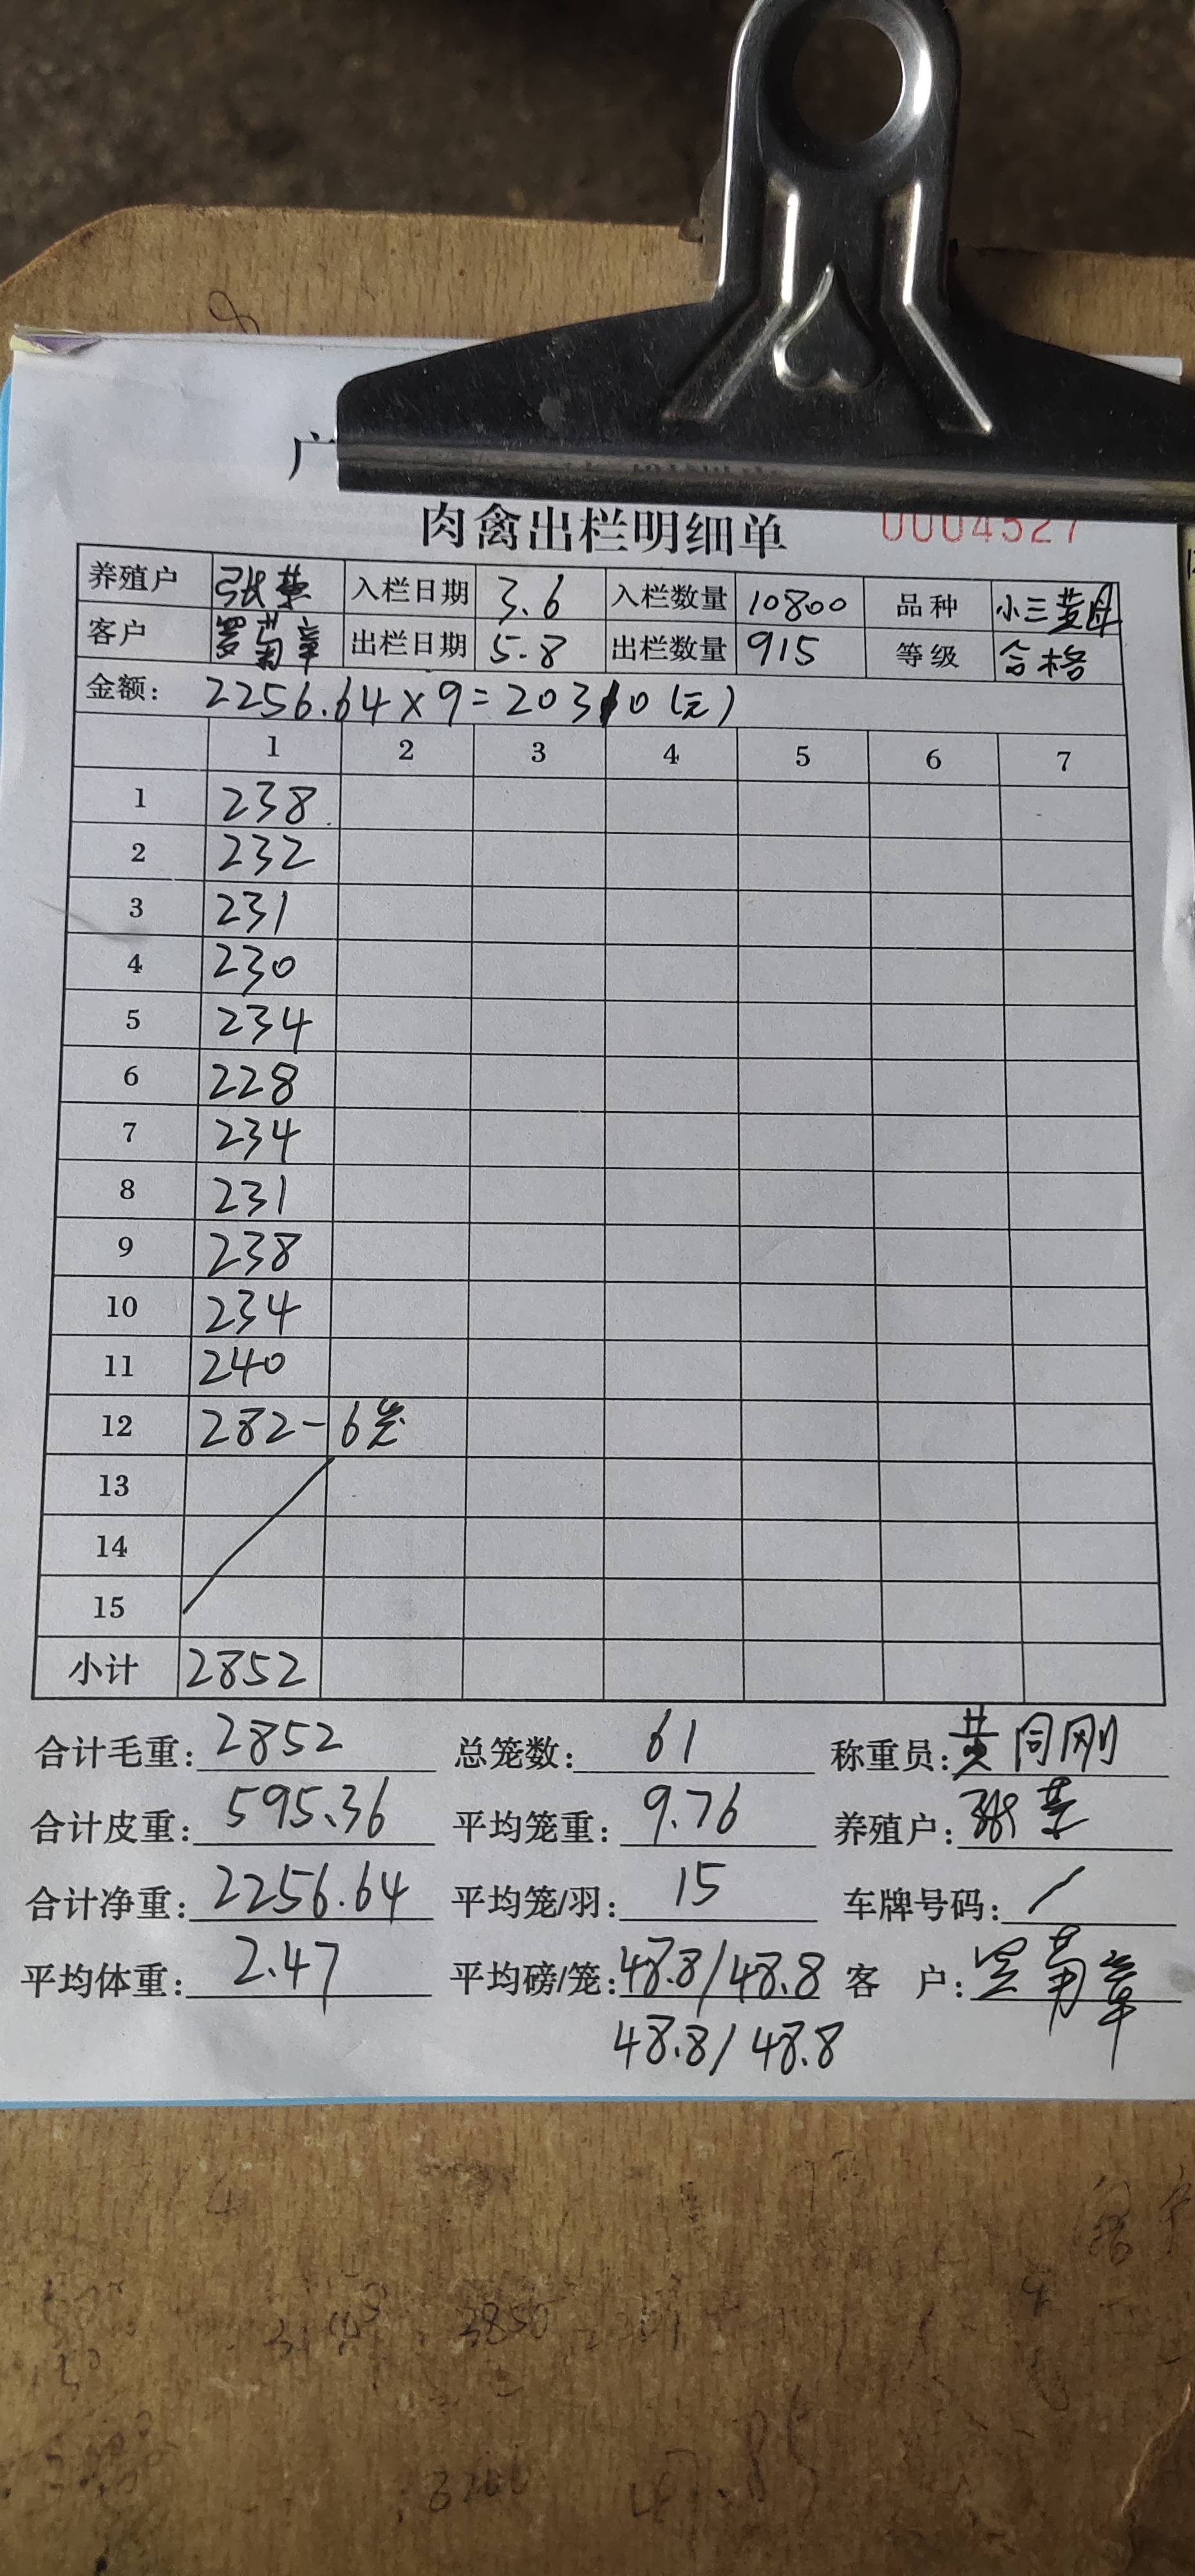 广
肉禽出栏明细单 0004527
养殖户 张荣 入栏日期 3.6 入栏数量 10800 品种 小三黄母
客户 罗菊章 出栏日期 5.8 出栏数量 915 等级 合格
金额: 2256.64×9=20310(元)
1 2 3 4 5 6 7
1 238
2 232
3 231
4 230
5 234
6 228
7 234
8 231
9 238
10 234
11 240
12 282-6笼
13
14
15
小计 2852
合计毛重: 2852 总笼数: 61 称重员: 黄同刚
合计皮重: 595.36 平均笼重: 9.76 养殖户: 张荣
合计净重: 2256.64 平均笼/羽: 15 车牌号码: /
平均体重: 2.47 平均磅/笼: 48.8/48.8 客户: 罗菊章
48.8/48.8